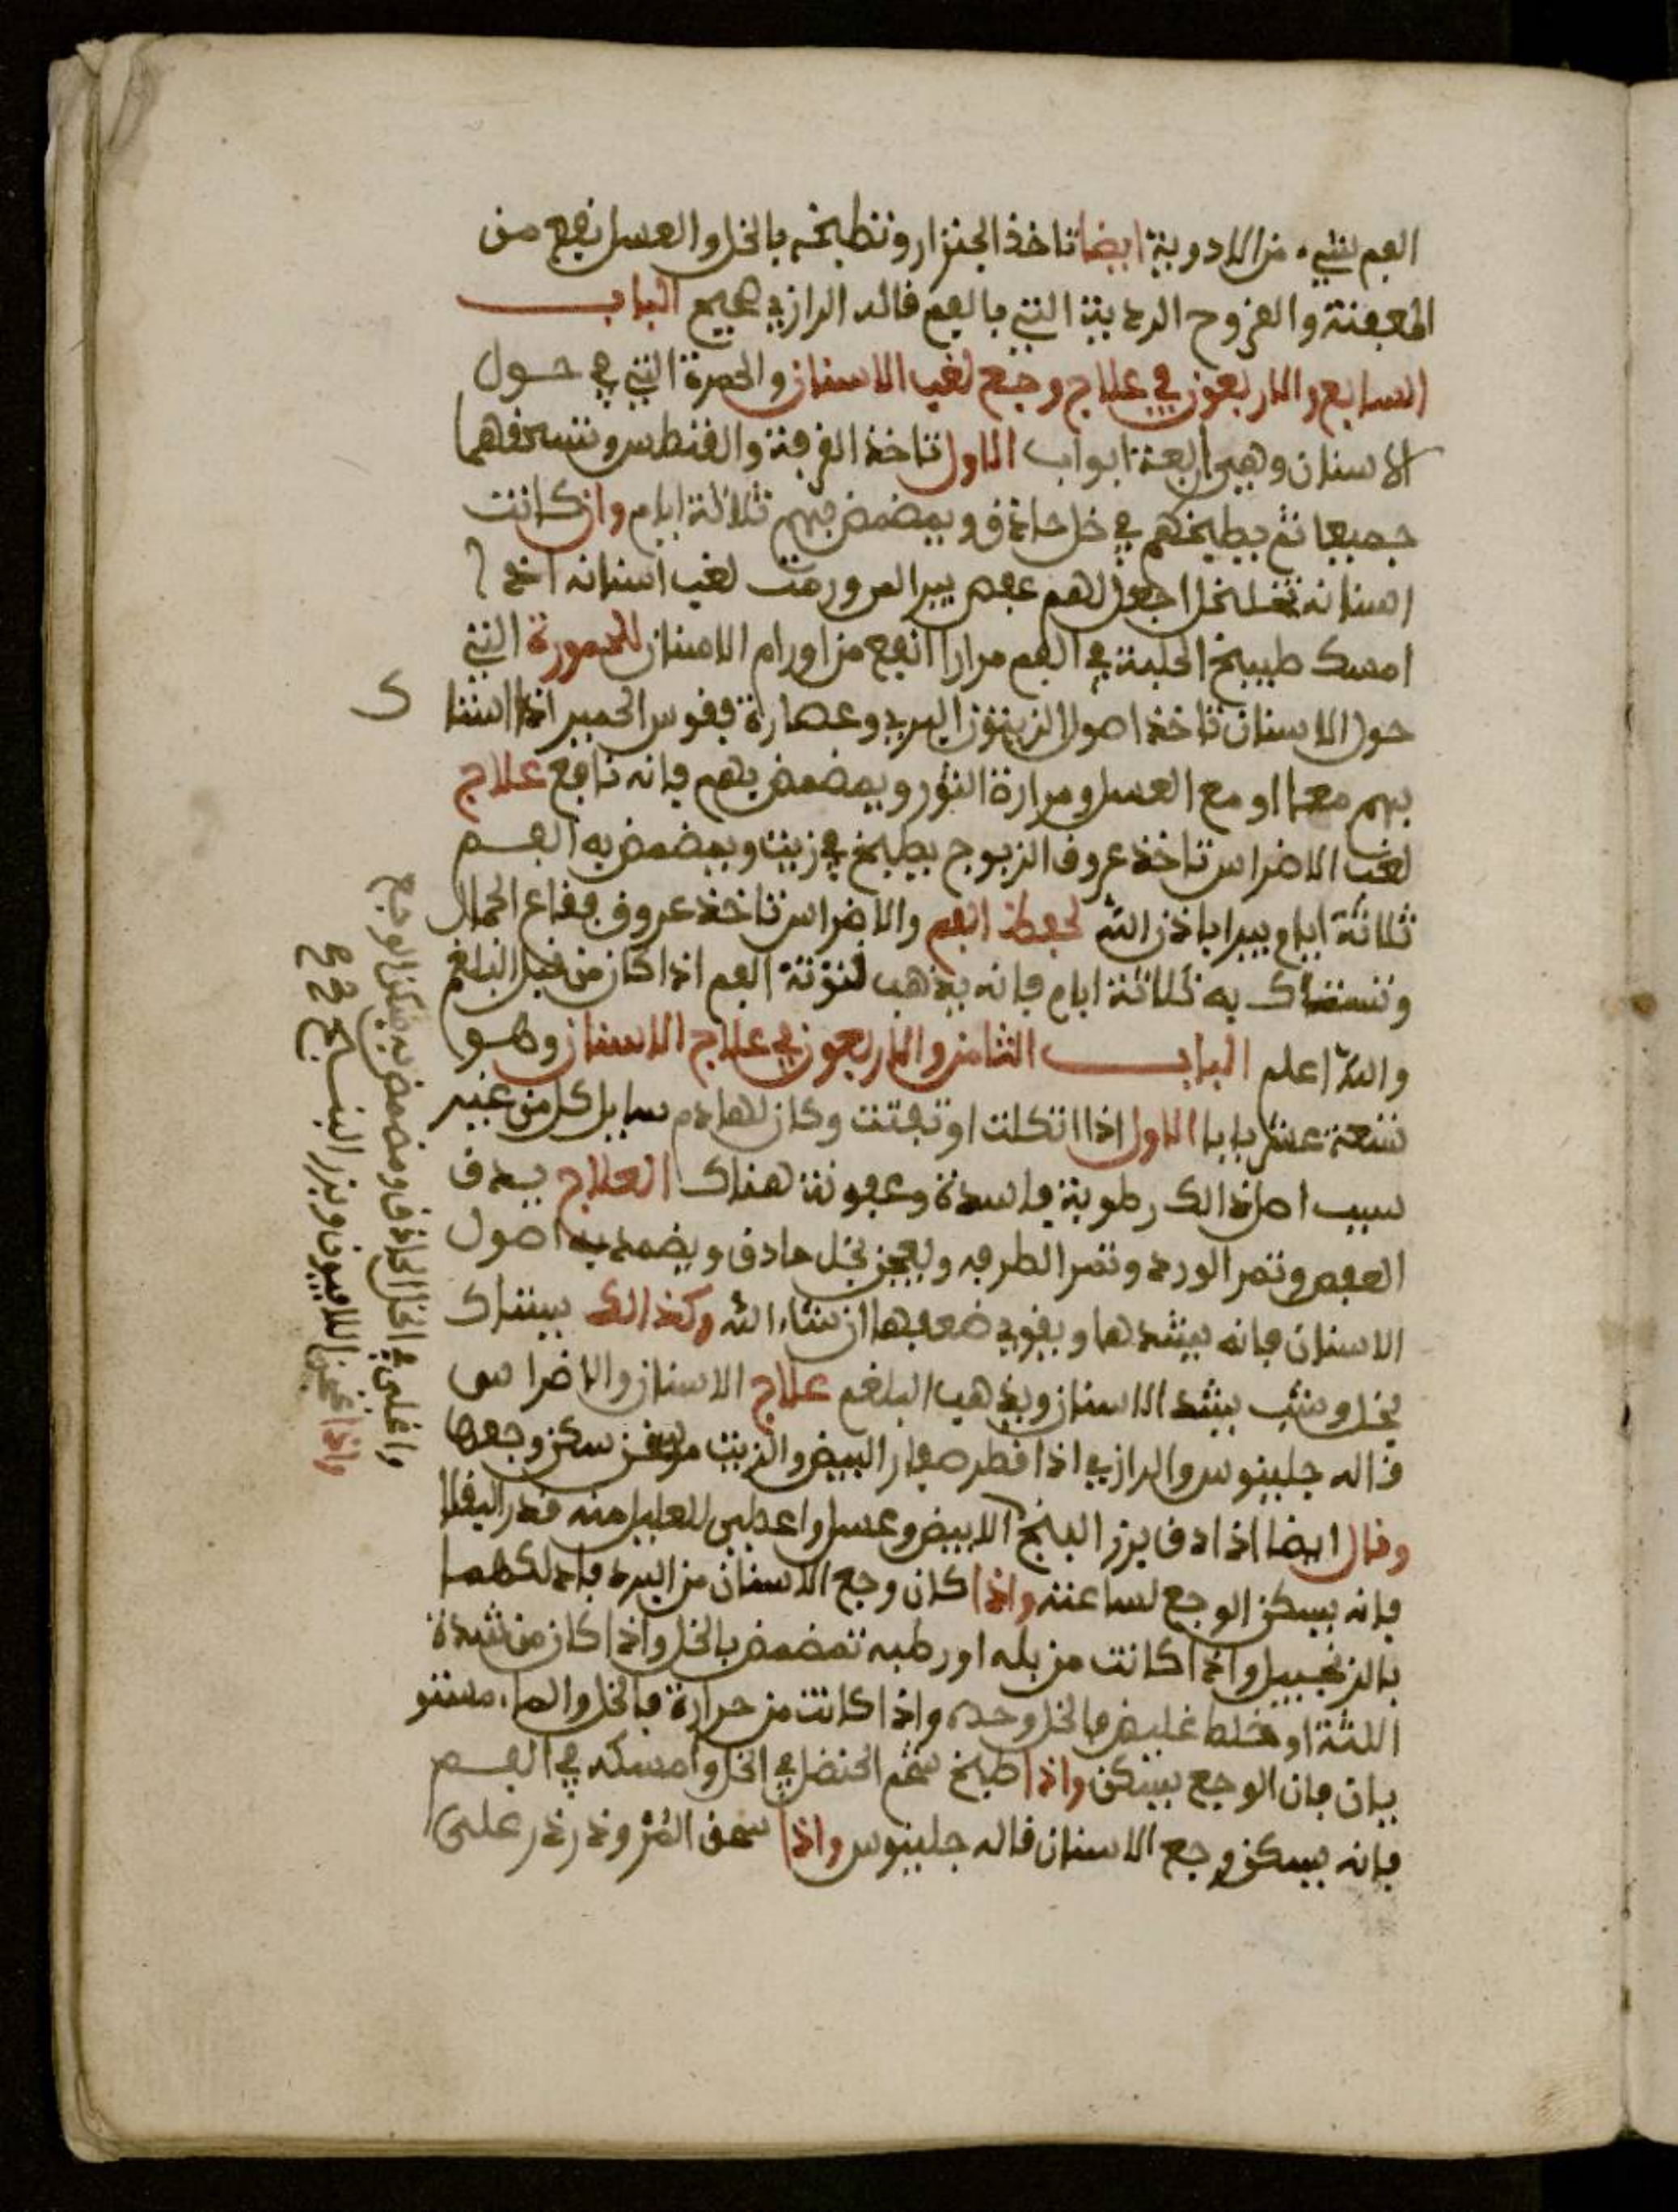 الفم بشيء من الادوية ايضا تاخذ الجنزار وتطبخه بالخل والعسل نفع من
المعفنة والقروح الردية التي بالفم قاله الرازي صحيح الباب
السابع والاربعون في علاج وجع لغب الاسنان والحمرة التي في حول
الاسنان وهي اربعة ابواب الاول تاخذ القرفة والقنطس وتسحقهما
جميعا ثم يطبخهم في خل حاذق ويمضمض بهم ثلاثة ايام وان كانت
اسنانه تخلخل اجعل لهم عفص يبرا لمن ورمت لغب اسنانه اخر
امسك طبيخ الحلبة في الفم مرارا انفع من اورام الاسنان للحمورة التي
حول الاسنان تاخذ اصول الزيتون البري وعصارة ففوس الحمير اذا استا
ك
بهم معا او مع العسل ومرارة الثور ويمضمض بهم فانه نافع علاج
لغب الاضراس تاخذ عروف الزبوج يطبخ في زيت ويمضمض به الفم
ثلاثة ايام يبرا باذن الله لحفظ الفم والاضراس تاخذ عروق ففاع الجمال
وتستاك به ثلاثة ايام فانه يذهب نتونة الفم اذا كان من قبل البلغم
والله اعلم الباب الثامن والاربعون في علاج الاسنان وهو
تسعة عشر بابا الاول اذا اتكلت او تفتت وكان لها دم سايل كل من غير
سبب اصل ذالك رطوبة فاسدة وعفونة هناك العلاج يدق
العفص وثمر الورد وثمر الطرفه ويعجن بخل حادق ويضمد به اصول
الاسنان فانه يشدها ويقوي ضعفها ان شاء الله وكذالك يستاك
بخل وشب يشد الاسنان ويذهب البلغم علاج الاسنان والاضراس
قاله جلينوس والرازي اذا قطر صفار البيض والزيت مسخن سكن وجعها
وقال ايضا اذا دق بزر البنج الابيض وعسل واعطي للعليل منه قدر الباقلا
فانه يسكن الوجع لساعته واذا كان وجع الاسنان من البرد فادلكهما
بالزنجبيل واذا كانت من بله او رطبه تمضمض بالخل واذا كان من شدة
اللثة او خلط غليض فالخل وحده واذا كانت من حرارة فالخل والماء مستو
يان فان الوجع يسكن واذا طبخ شحم الحنضل في الخل وامسكه في الفم
فانه يسكن وجع الاسنان قاله جلينوس واذا سحق المر وذرذر على
واغلي في الخل الحاذق ومضمض به سكن الوجع
واذا عجن الافيون وبزر البنساج